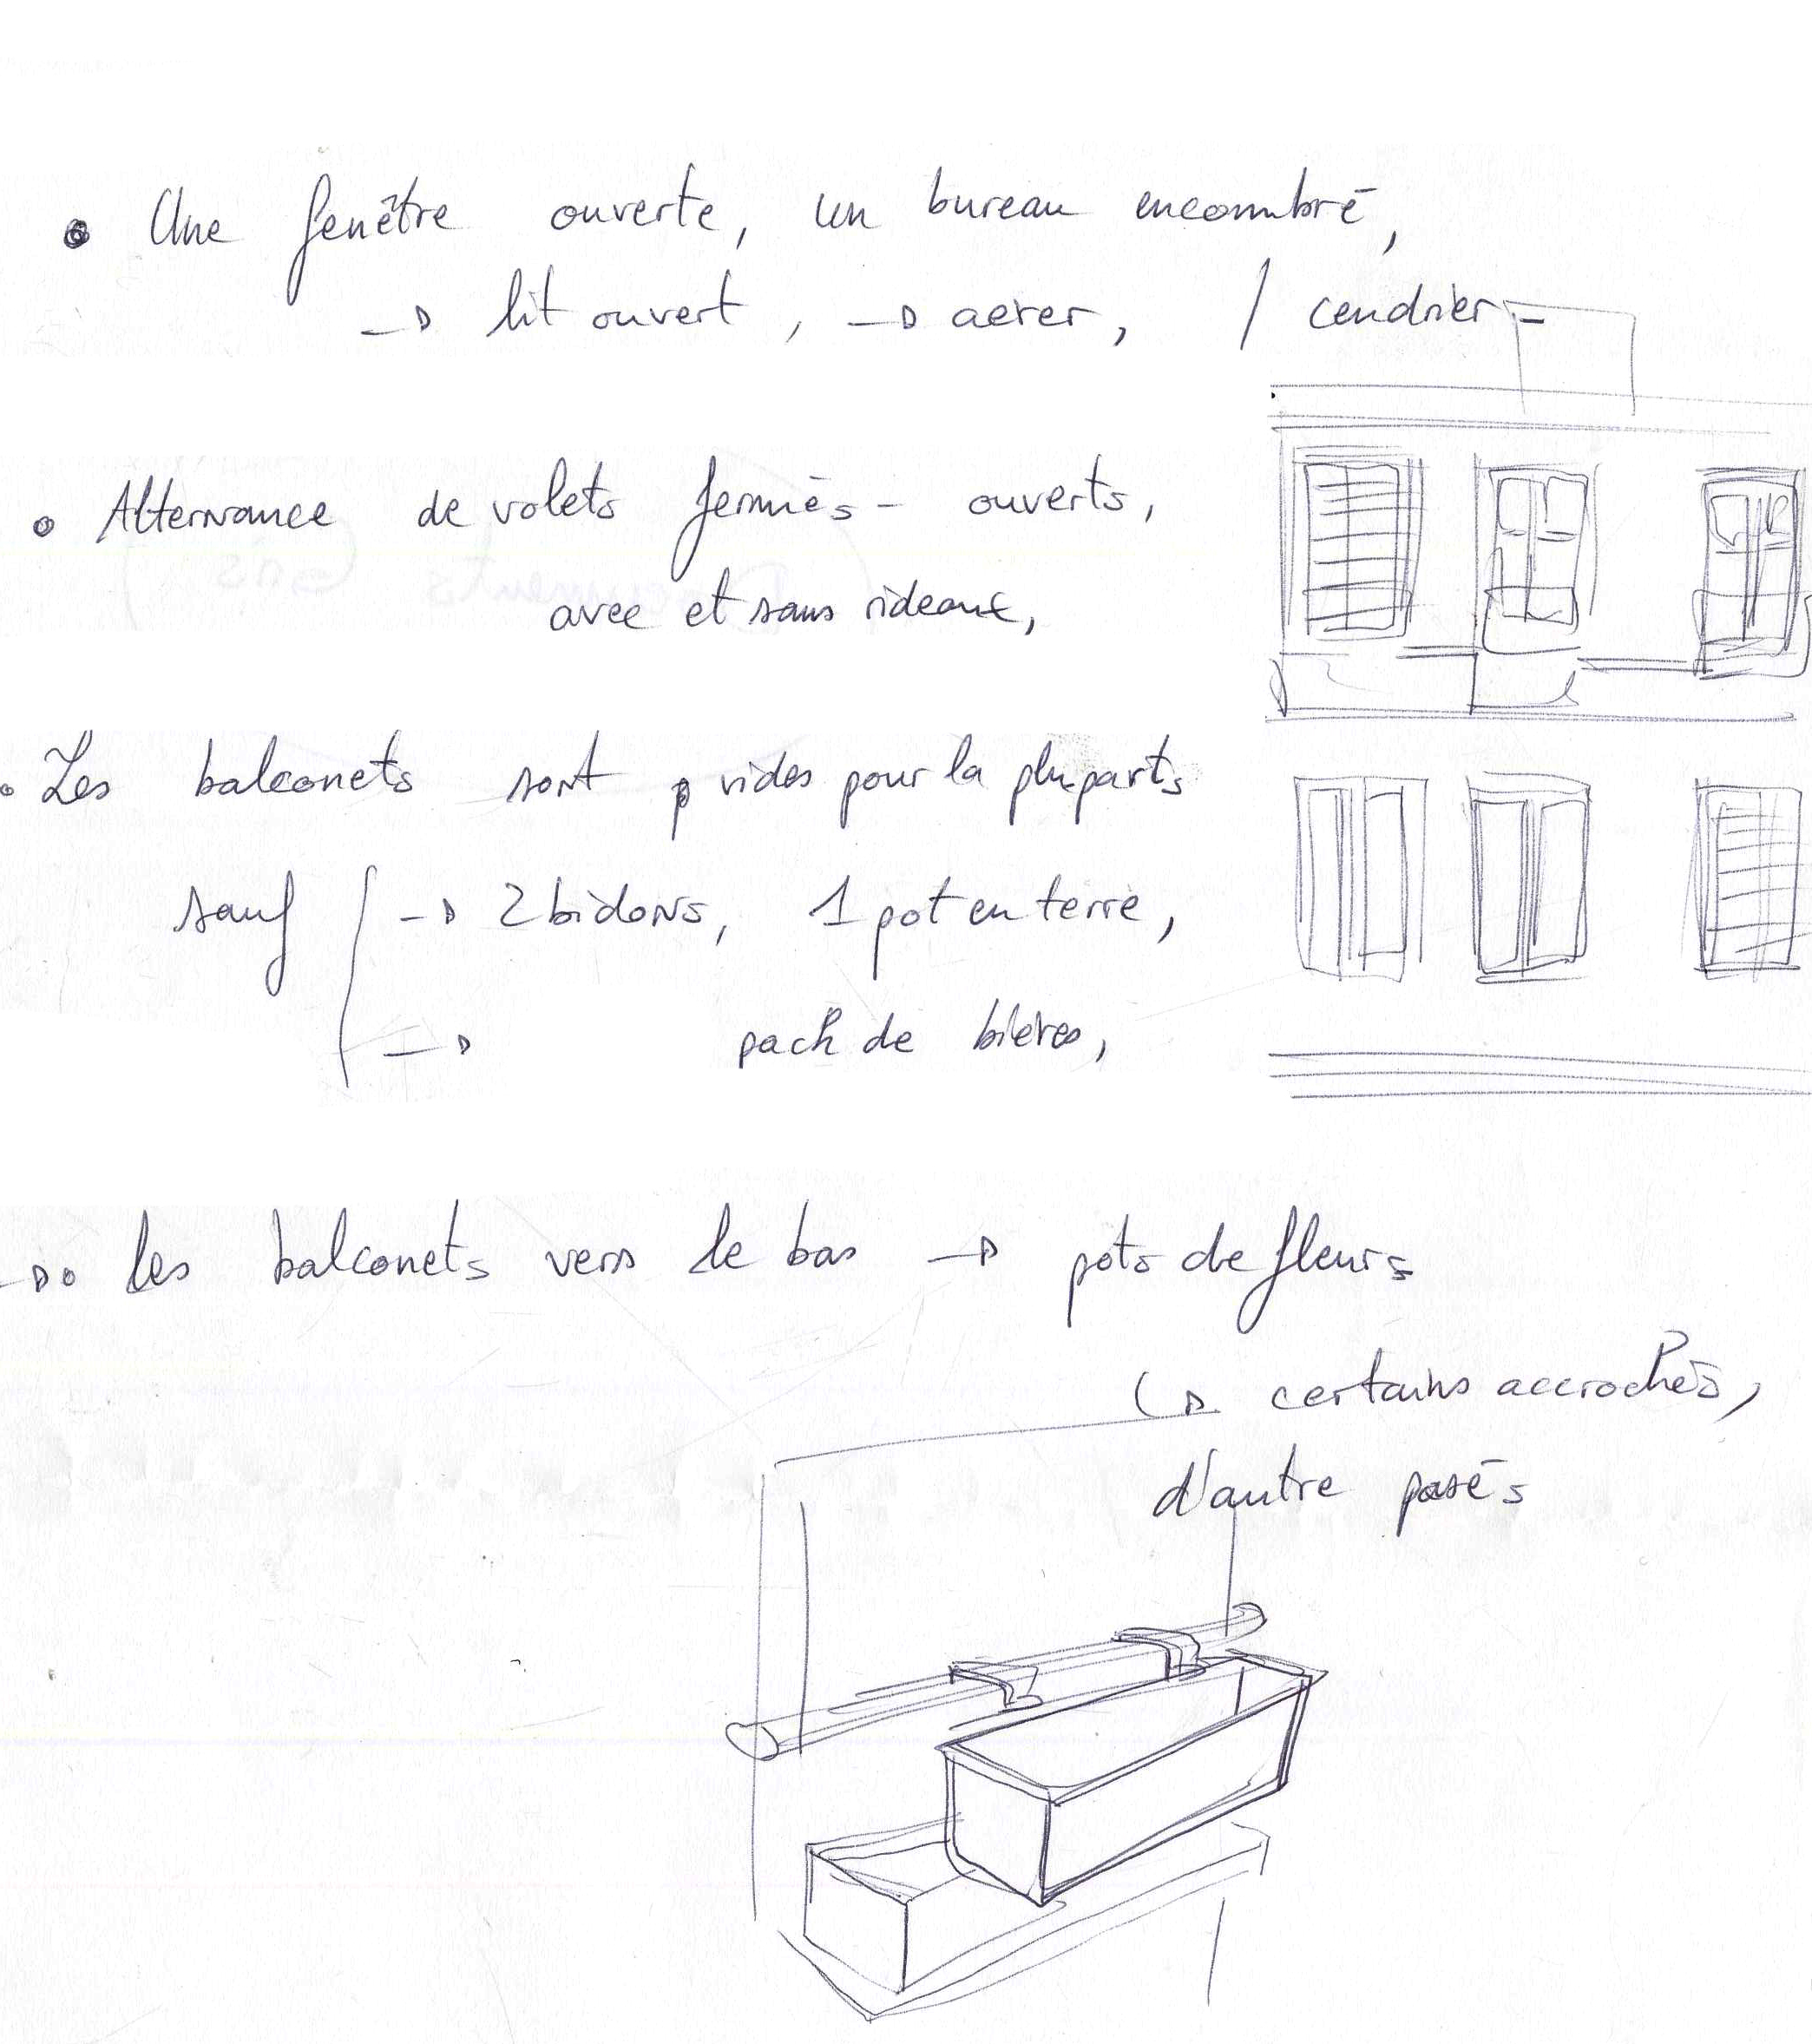 • Une fenêtre ouverte, un bureau encombré,
→ lit ouvert, → aérer, / cendrier -
• Alternance de volets fermés - ouverts,
avec et sans rideaux,
• Les balconets sont vides pour la pluparts
sauf → 2 bidons, 1 pot en terre,
→ pack de bières,
→ • les balconets vers le bas → pots de fleurs
↳ certains accrochés,
d'autre posés